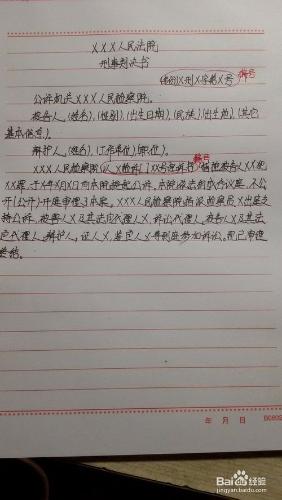 XXX人民法院
刑事判决书
(年份)X刑X字第X号
编号
公诉机关XXX人民检察院。
被告人,(姓名),(性别),(出生日期),(民族),(出生地),(其它
基本信息)。
辩护人,(姓名),(工作单位),(职位)。
XXX人民检察院以X检诉[ ]XX号起诉书 指控被告人XX犯
XX罪,于X年X月X日向本院提起公诉。本院依法组成合议庭,不公
开(公开)开庭审理了本案。XXX人民检察院指派检察员X出庭支
持公诉,被害人X及其法定代理人X,诉讼代理人,被告人X及其法
定代理人,辩护人,证人X,鉴定人X等到庭参加诉讼。现已审理
终结。
年 月 日
Baidu经验
jingyan.baidu.com